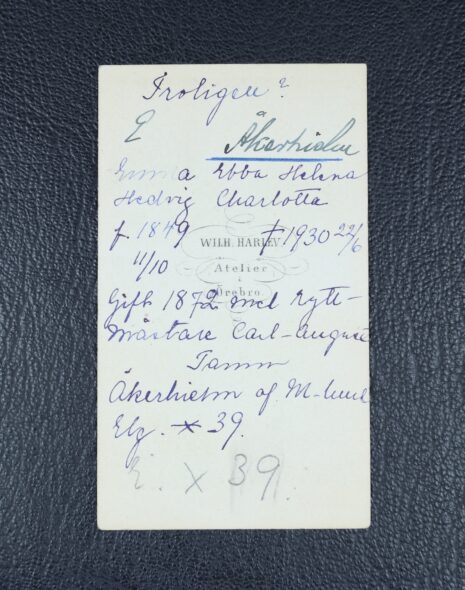 Troligen?
E Åkerhielm
Emma Ebba Helena
Hedvig Charlotta
f. 1849 † 1930 22/6
11/10
WILH. HARLEV.
Atelier
i
Örebro.
Gift 1872 med Rytt-
mästare Carl-August
Tamm
Åkerhielm af M-lund
Elg. × 39.
E. × 39.